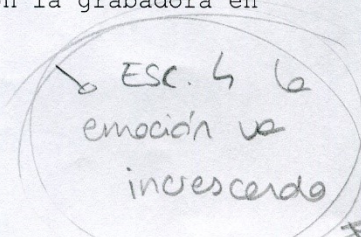 n la grabadora en
ESC. 4 la
emoción va
increscendo